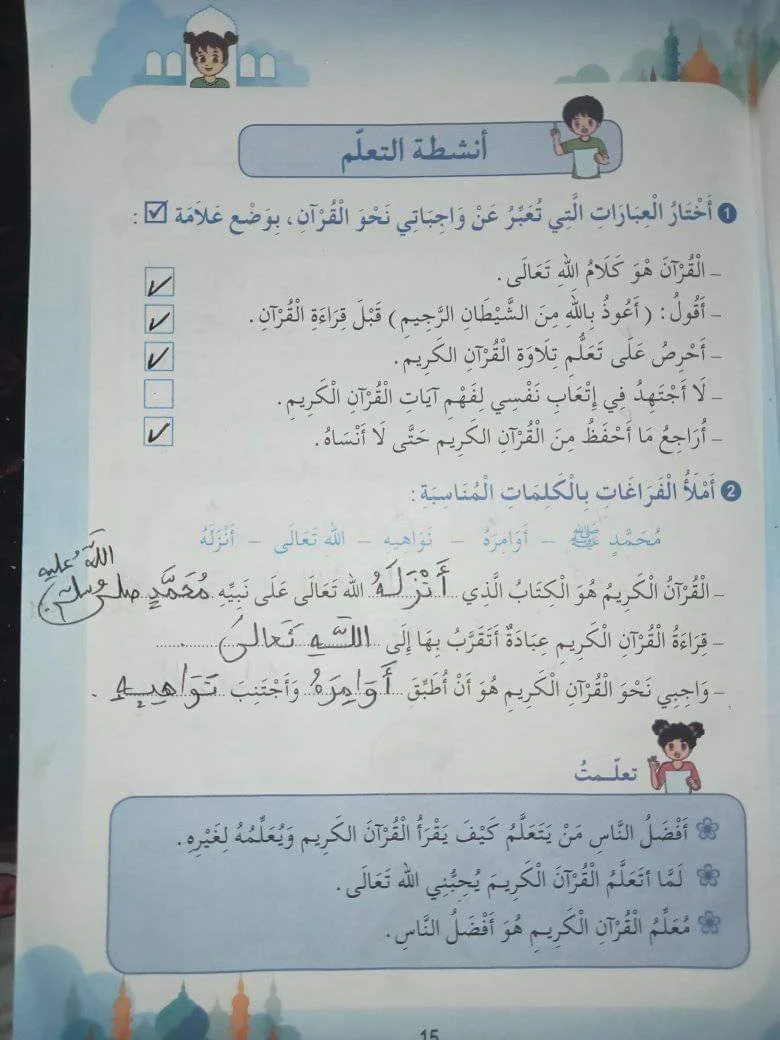 أنشطة التعلّم
1 أَخْتَارُ الْعِبَارَاتِ الَّتِي تُعَبِّرُ عَنْ وَاجِبَاتِي نَحْوَ الْقُرْآنِ، بِوَضْعِ عَلَامَة ☑ :
– الْقُرْآنَ هُوَ كَلَامُ اللهِ تَعَالَى. ✓
– أَقُولُ: (أَعُوذُ بِاللهِ مِنَ الشَّيْطَانِ الرَّجِيمِ) قَبْلَ قِرَاءَةِ الْقُرْآنِ. ✓
– أَحْرِصُ عَلَى تَعَلُّمِ تِلَاوَةِ الْقُرْآنِ الكَرِيمِ. ✓
– لَا أَجْتَهِدُ فِي إِتْعَابِ نَفْسِي لِفَهْمِ آيَاتِ الْقُرْآنِ الْكَرِيمِ.
– أُرَاجِعُ مَا أَحْفَظُ مِنَ الْقُرْآنِ الكَرِيم حَتَّى لَا أَنْسَاهُ. ✓
2 أَمْلَأُ الْفَرَاغَاتِ بِالْكَلِمَاتِ الْمُنَاسِبَةِ:
مُحَمَّدٍ ﷺ – أَوَامِرَهُ – نَوَاهِيهِ – اللهِ تَعَالَى – أَنْزَلَهُ
– الْقُرْآنُ الْكَرِيمُ هُوَ الْكِتَابُ الَّذِي أَنْزَلَهُ الله تَعَالَى عَلَى نَبِيِّهِ مُحَمَّدٍ صلى الله عليه وسلم
– قِرَاءَةُ الْقُرْآنِ الْكَرِيمِ عِبَادَةٌ أَتَقَرَّبُ بِهَا إِلَى اللَّهِ تَعَالَى
– وَاجِبِي نَحْوَ الْقُرْآنِ الْكَرِيمِ هُوَ أَنْ أُطَبِّقَ أَوَامِرَهُ وَأَجْتَنِبَ نَوَاهِيهِ .
تعلّـمتُ
أَفْضَلُ النَّاسِ مَنْ يَتَعَلَّمُ كَيْفَ يَقْرَأُ الْقُرْآنَ الكَرِيم وَيُعَلِّمُهُ لِغَيْرِهِ.
لَمَّا أتَعَلَّمُ الْقُرْآنَ الْكَرِيمَ يُحِبُّنِي الله تَعَالَى.
مُعَلِّمُ الْقُرْآنِ الْكَرِيمِ هُوَ أَفْضَلُ النَّاسِ.
15